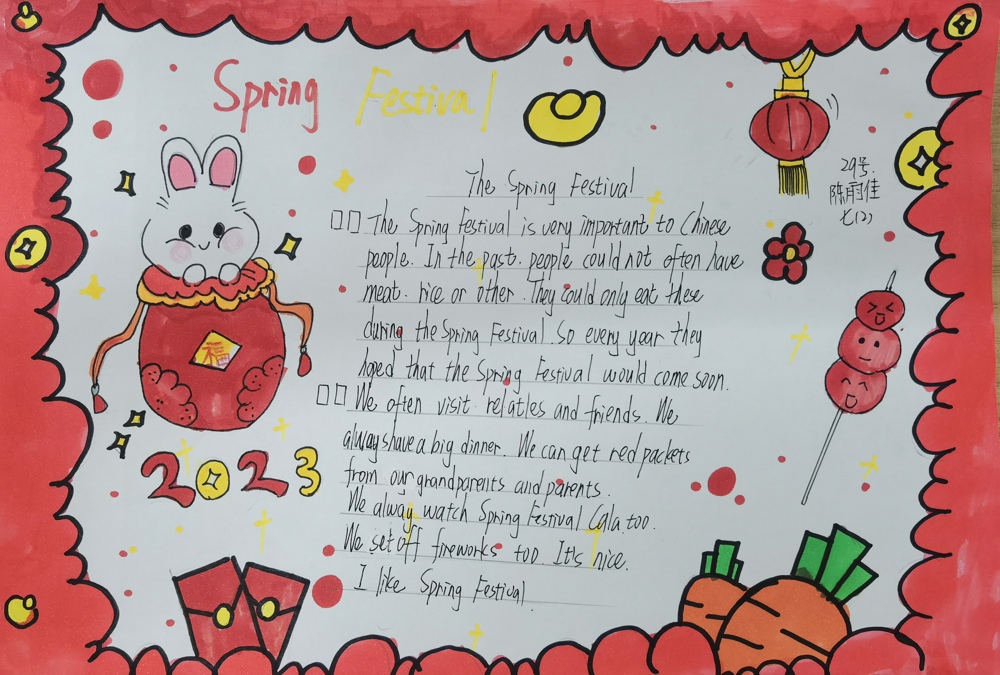 Spring Festival
29号
陈雨佳
七(2)
The Spring Festival
The Spring Festival is very important to Chinese
people. In the past. people could not often have
meat. rice or other. They could only eat these
during the Spring Festival So every year they
hoped that the Spring Festival would come soon.
We often visit relatles and friends. We
always have a big dinner. We can get red packets
from our grandparents and parents.
We alway watch Spring Festival Gala too.
We set off fireworks too. It's nice.
I like Spring Festival.
2023